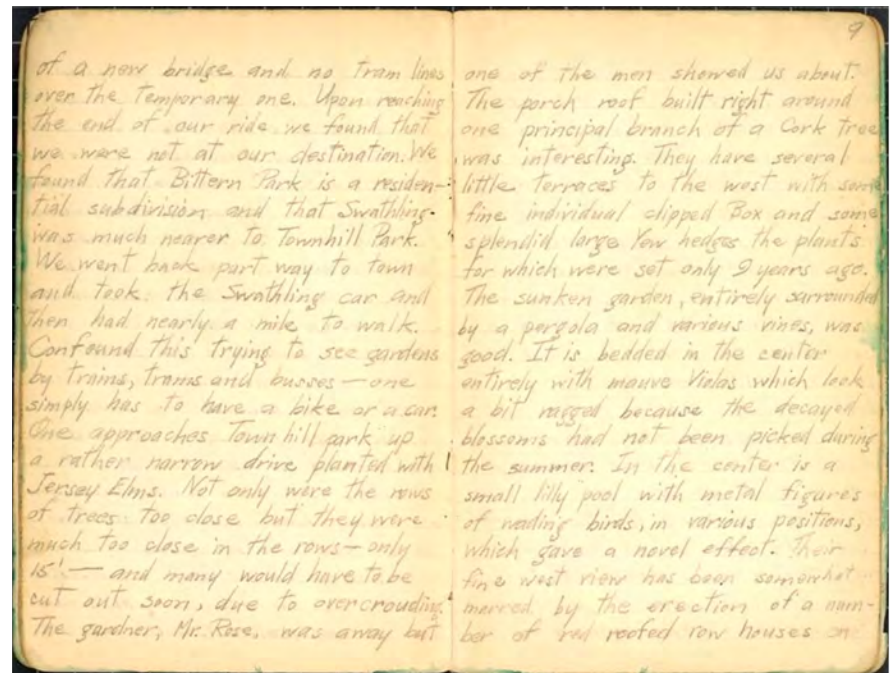 of a new bridge and no tram lines
over the temporary one. Upon reaching
the end of our ride we found that
we were not at our destination. We
found that Bittern Park is a residen-
tial subdivision and that Swathling
was much nearer to Townhill Park.
We went back part way to town
and took the Swathling car and
then had nearly a mile to walk.
Confound this trying to see gardens
by trains, trams and busses — one
simply has to have a bike or a car.
One approaches Town hill park up
a rather narrow drive planted with
Jersey Elms. Not only were the rows
of trees too close but they were
much too close in the rows — only
15' — and many would have to be
cut out soon, due to overcrouding.
The gardner, Mr. Rose, was away but
9
one of the men showed us about.
The porch roof built right around
one principal branch of a Cork tree
was interesting. They have several
little terraces to the west with some
fine individual clipped Box and some
splendid large Yew hedges the plants
for which were set only 9 years ago.
The sunken garden, entirely surrounded
by a pergola and various vines, was
good. It is bedded in the center
entirely with mauve Violas which look
a bit ragged because the decayed
blossoms had not been picked during
the summer. In the center is a
small lilly pool with metal figures
of wading birds, in various positions,
which gave a novel effect. Their
fine west view has been somewhat
marred by the erection of a num-
ber of red roofed row houses on